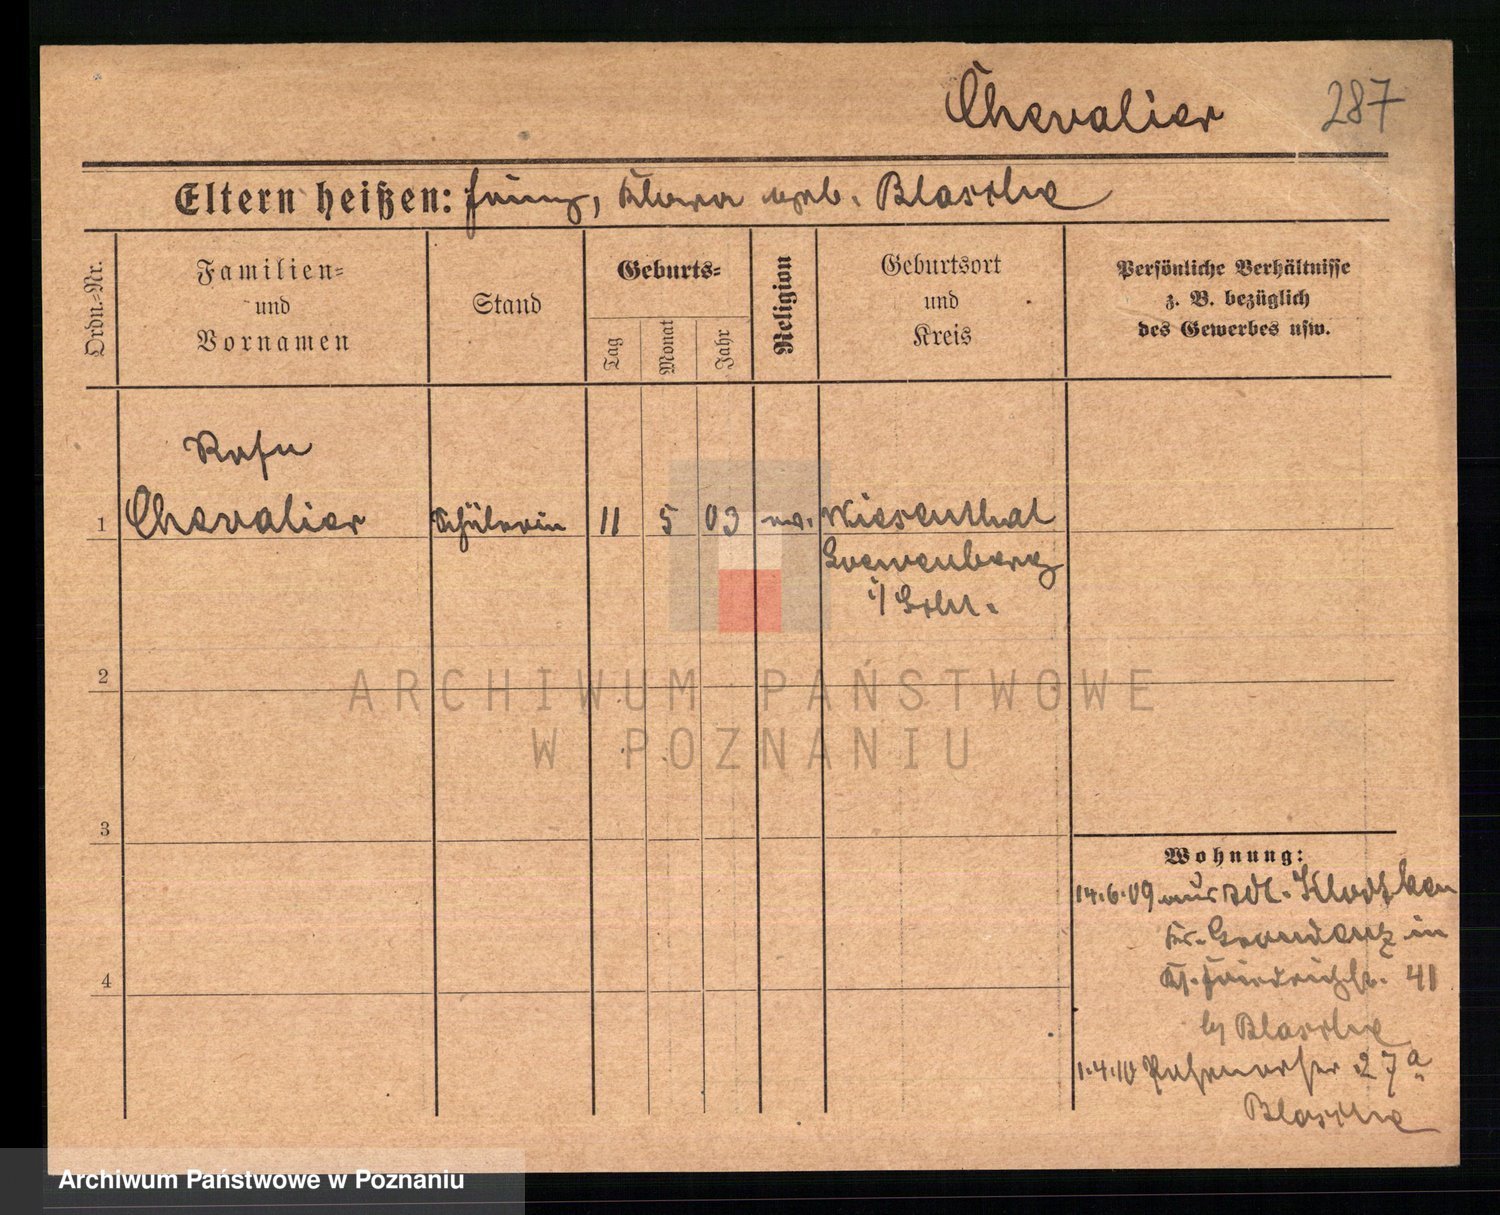 Chevalier 287
Eltern heißen: Franz, Klara geb. Blaschke
Ordn.-Nr.
Familien-
und
Vornamen
Stand
Geburts-
Tag
Monat
Jahr
Religion
Geburtsort
und
Kreis
Persönliche Verhältnisse
z. B. bezüglich
des Gewerbes usw.
Rosa
1 Chevalier Schülerin 11 5 03 ev. Wiesenthal
Loewenberg
i/ Schl.
2
ARCHIWUM PAŃSTWOWE
W POZNANIU
3
4
Wohnung:
14.6.09 aus Adl. Klodtken
Kr. Graudenz in
Ks. Friedrichstr. 41
by Blaschke
1.4.10 Posenerstr 27a
Blaschke
Archiwum Państwowe w Poznaniu